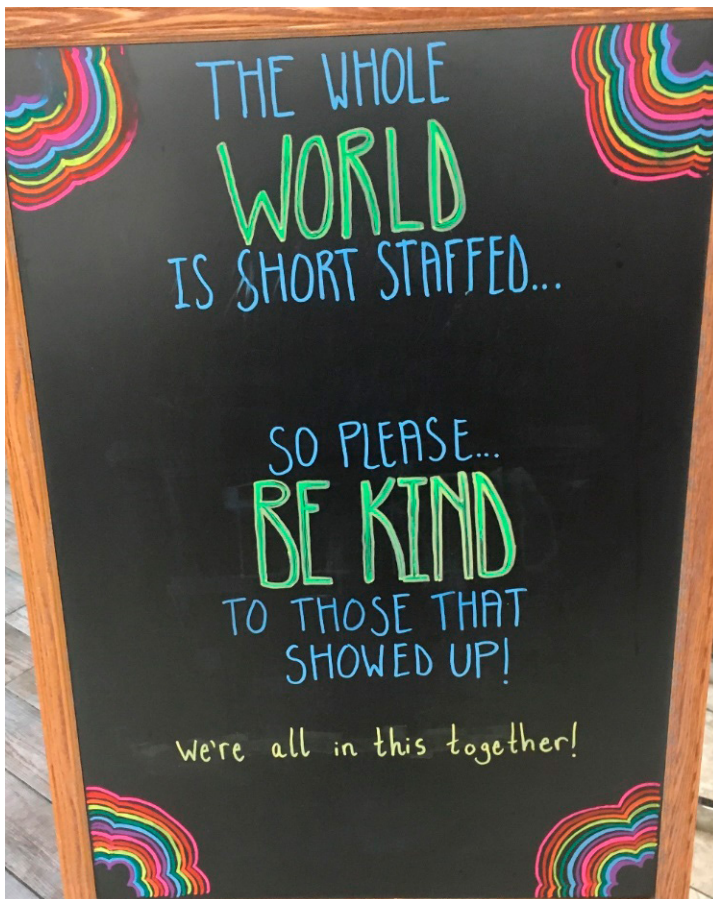 THE WHOLE
WORLD
IS SHORT STAFFED...
SO PLEASE...
BE KIND
TO THOSE THAT
SHOWED UP!
we're all in this together!